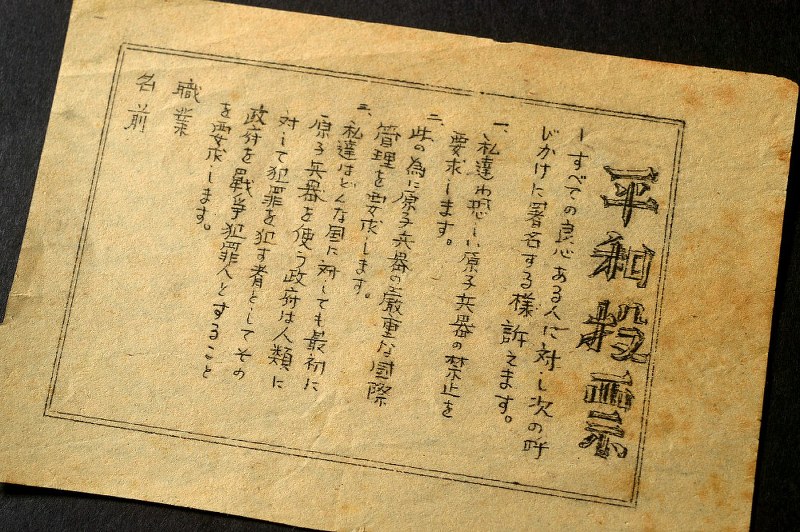 平和投票
ーすべての良心ある人に対し次の呼
びかけに署名する様訴えます。
一、私達わ恐しい原子兵器の禁止を
要求します。
二、此の為に原子兵器の厳重な国際
管理を要求します。
三、私達はどんな国に対しても最初に
原子兵器を使う政府は人類に
対して犯罪を犯す者としてその
政府を戦争犯罪人とすること
を要求します。
職業
名前